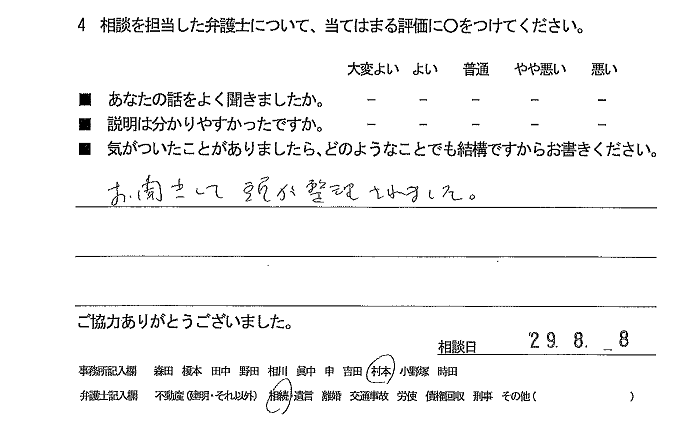 4 相談を担当した弁護士について、当てはまる評価に〇をつけてください。
大変よい よい 普通 やや悪い 悪い
■ あなたの話をよく聞きましたか。 − − − − −
■ 説明は分かりやすかったですか。 − − − − −
■ 気がついたことがありましたら、どのようなことでも結構ですからお書きください。
お聞きして 頭が整理されました。
ご協力ありがとうございました。
相談日 '29. 8. 8
事務所記入欄 森田 榎本 田中 野田 相川 眞中 申 吉田 村本 小野塚 時田
弁護士記入欄 不動産(建明・それ以外) 相続・遺言 離婚 交通事故 労使 債権回収 刑事 その他( )